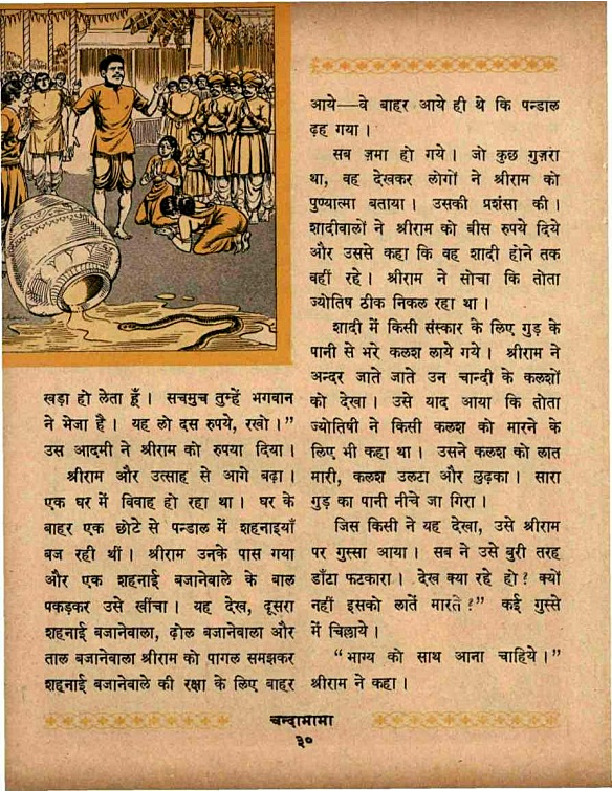 खड़ा हो लेता हूँ। सचमुच तुम्हें भगवान
ने भेजा है। यह लो दस रुपये, रखो।”
उस आदमी ने श्रीराम को रुपया दिया।
श्रीराम और उत्साह से आगे बढ़ा।
एक घर में विवाह हो रहा था। घर के
बाहर एक छोटे से पन्डाल में शहनाइयाँ
बज रही थीं। श्रीराम उनके पास गया
और एक शहनाई बजानेवाले के बाल
पकड़कर उसे खींचा। यह देख, दूसरा
शहनाई बजानेवाला, ढ़ोल बजानेवाला और
ताल बजानेवाला श्रीराम को पागल समझकर
शहनाई बजानेवाले की रक्षा के लिए बाहर
आये—वे बाहर आये ही थे कि पन्डाल
ढ़ह गया।
सब ज़मा हो गये। जो कुछ गुज़रा
था, वह देखकर लोगों ने श्रीराम को
पुण्यात्मा बताया। उसकी प्रशंसा की।
शादीवालों ने श्रीराम को बीस रुपये दिये
और उससे कहा कि वह शादी होने तक
वहीं रहे। श्रीराम ने सोचा कि तोता
ज्योतिष ठीक निकल रहा था।
शादी में किसी संस्कार के लिए गुड़ के
पानी से भरे कलश लाये गये। श्रीराम ने
अन्दर जाते जाते उन चान्दी के कलशों
को देखा। उसे याद आया कि तोता
ज्योतिषी ने किसी कलश को मारने के
लिए भी कहा था। उसने कलश को लात
मारी, कलश उलटा और लुढ़का। सारा
गुड़ का पानी नीचे जा गिरा।
जिस किसी ने यह देखा, उसे श्रीराम
पर गुस्सा आया। सब ने उसे बुरी तरह
डाँटा फटकारा। देख क्या रहे हो? क्यों
नहीं इसको लातें मारते?” कई गुस्से
में चिल्लाये।
“भाग्य को साथ आना चाहिये।”
श्रीराम ने कहा।
चन्दामामा
३०